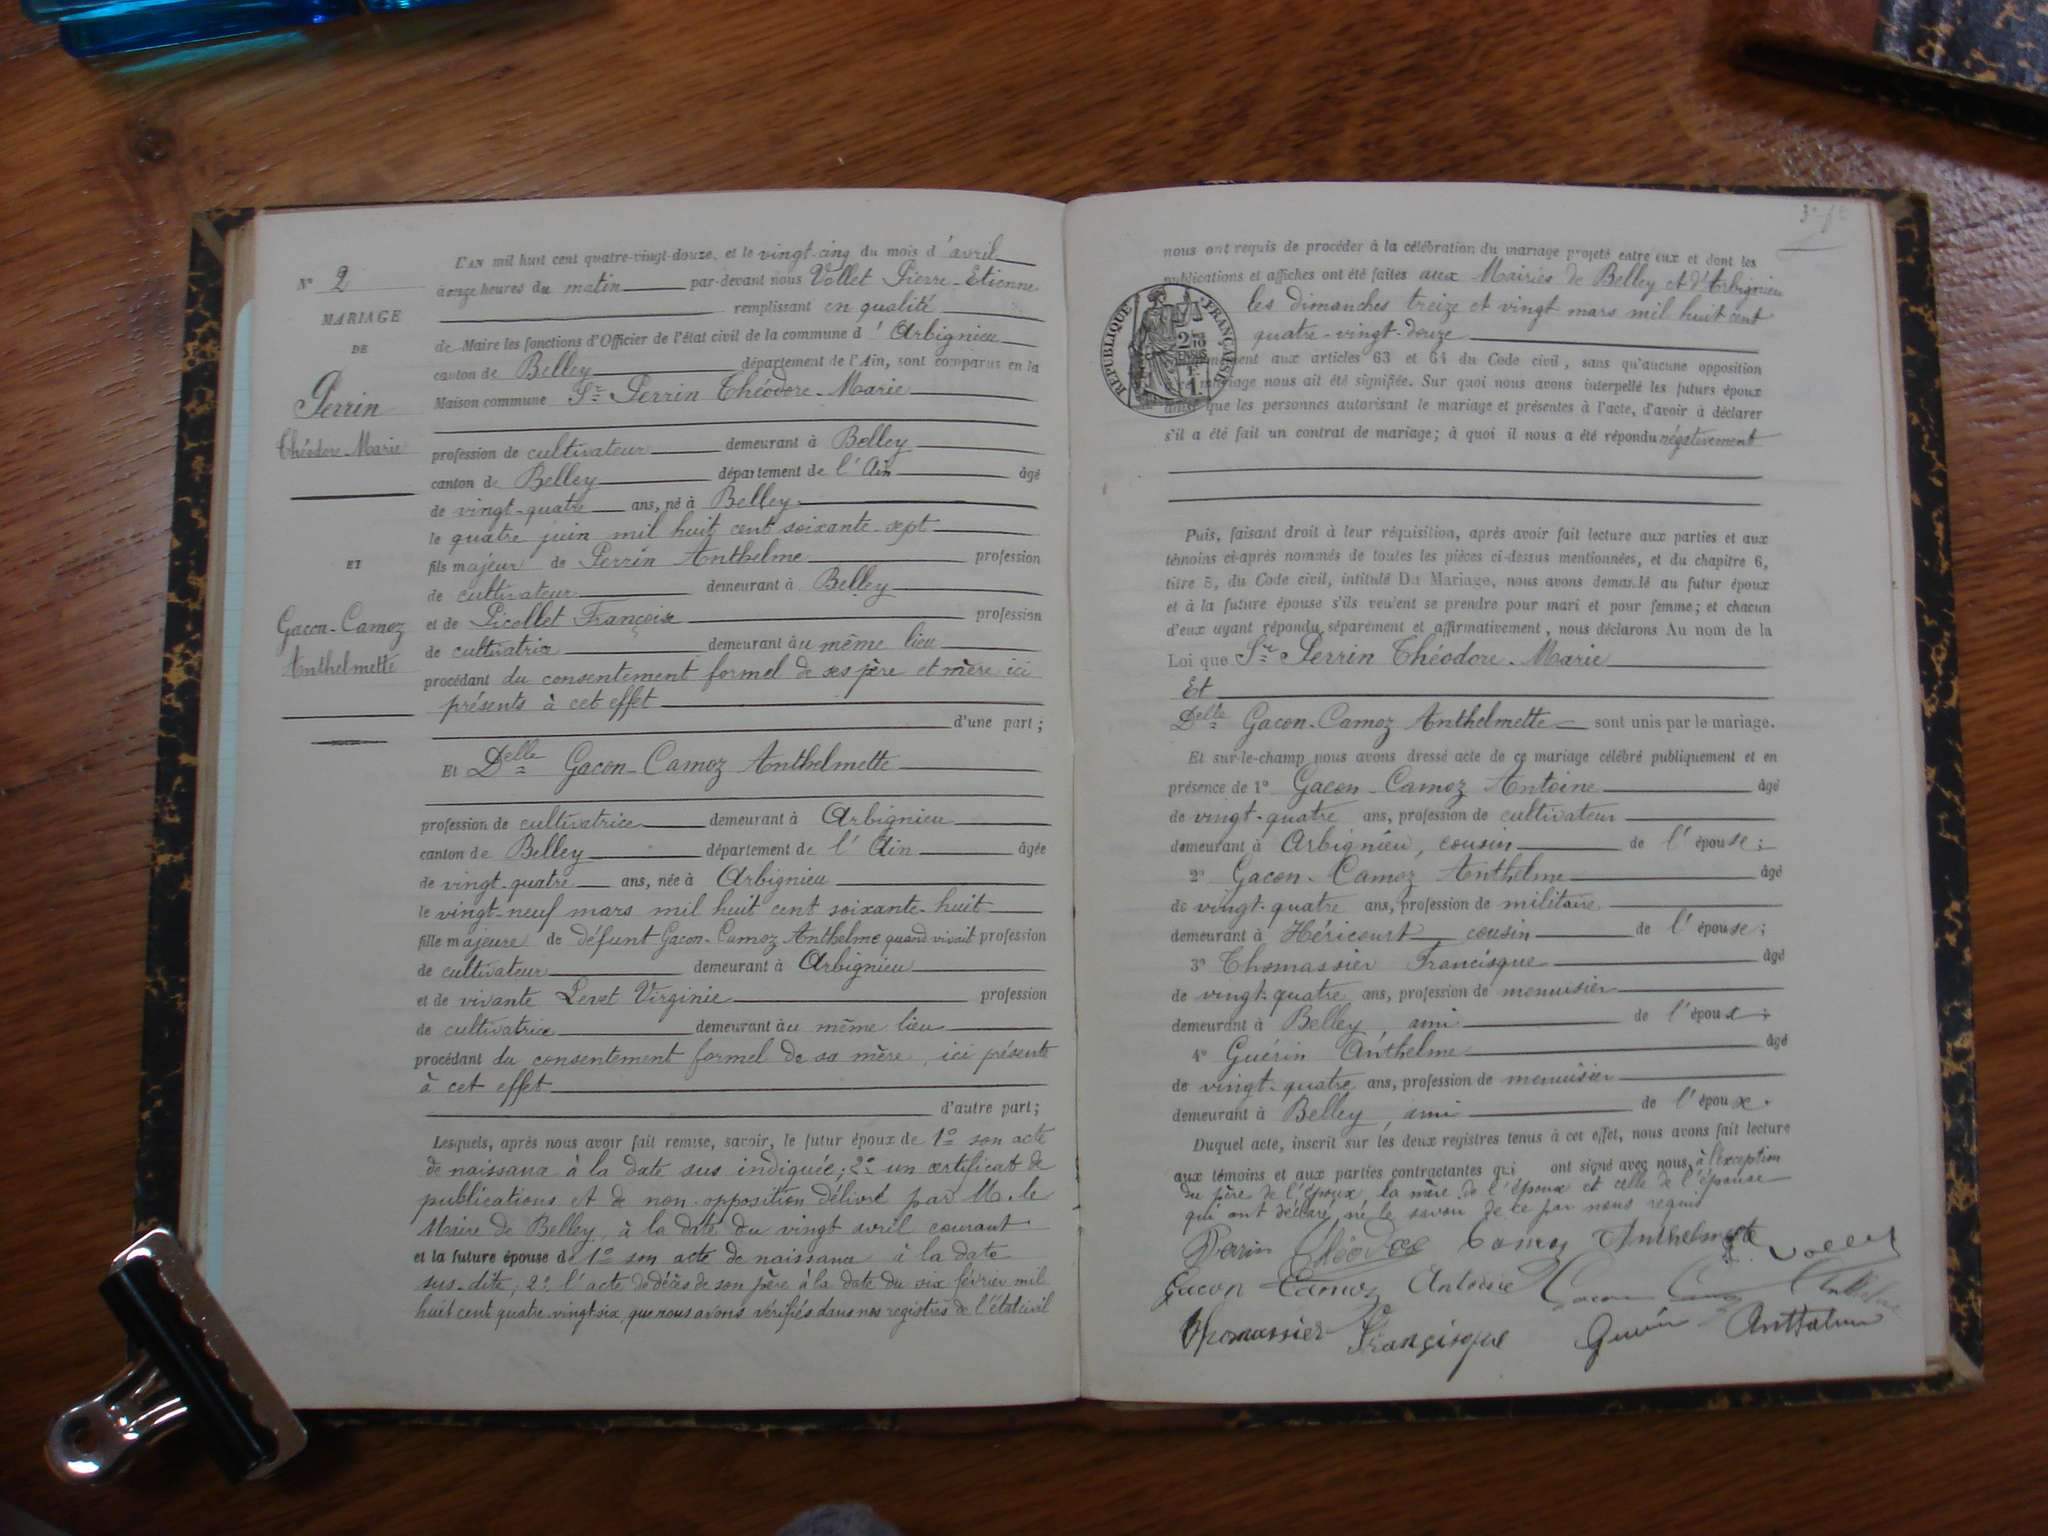 N° 2
MARIAGE
DE
Perrin
Théodore-Marie
ET
Gacon-Camoz
Anthelmette
L'AN mil huit cent quatre-vingt-douze, et le vingt-cinq du mois d'avril
à onze heures du matin par-devant nous Vollet Pierre-Etienne
remplissant en qualité
de Maire les fonctions d'Officier de l'état civil de la commune d'Arbignieu
canton de Belley département de l'Ain, sont comparus en la
Maison commune Sr Perrin Théodore-Marie
profession de cultivateur demeurant à Belley
canton de Belley département de l'Ain âgé
de vingt-quatre ans, né à Belley
le quatre juin mil huit cent soixante-sept
fils majeur de Perrin Anthelme profession
de cultivateur demeurant à Belley
et de Picollet Françoise profession
de cultivatrice demeurant au même lieu
procédant du consentement formel de ses père et mère ici
présents à cet effet
d'une part;
Et Delle Gacon-Camoz Anthelmette
profession de cultivatrice demeurant à Arbignieu
canton de Belley département de l'Ain âgée
de vingt-quatre ans, née à Arbignieu
le vingt-neuf mars mil huit cent soixante-huit
fille majeure de défunt Gacon-Camoz Anthelme quand vivait profession
de cultivateur demeurant à Arbignieu
et de vivante Peret Virginie profession
de cultivatrice demeurant au même lieu
procédant du consentement formel de sa mère, ici présente
à cet effet
d'autre part;
Lesquels, après nous avoir fait remise, savoir, le futur époux de 1° son acte
de naissance à la date sus indiquée; 2° un certificat de
publications et de non-opposition délivré par M. le
Maire de Belley, à la date du vingt avril courant
et la future épouse de 1° son acte de naissance à la date
sus-dite, 2° l'acte de décès de son père à la date du six février mil
huit cent quatre-vingt six, que nous avons vérifiés dans nos registres de l'état civil
nous ont requis de procéder à la célébration du mariage projeté entre eux et dont les
publications et affiches ont été faites aux Mairies de Belley et d'Arbignieu
les dimanches treize et vingt mars mil huit cent
quatre-vingt-douze
RÉPUBLIQUE FRANÇAISE
aux articles 63 et 64 du Code civil, sans qu'aucune opposition
mariage nous ait été signifiée. Sur quoi nous avons interpellé les futurs époux
ainsi que les personnes autorisant le mariage et présentes à l'acte, d'avoir à déclarer
s'il a été fait un contrat de mariage; à quoi il nous a été répondu négativement
Puis, faisant droit à leur réquisition, après avoir fait lecture aux parties et aux
témoins ci-après nommés de toutes les pièces ci-dessus mentionnées, et du chapitre 6,
titre 5, du Code civil, intitulé Du Mariage, nous avons demandé au futur époux
et à la future épouse s'ils veulent se prendre pour mari et pour femme; et chacun
d'eux ayant répondu séparément et affirmativement, nous déclarons Au nom de la
Loi que Sr Perrin Théodore-Marie
Et
Delle Gacon-Camoz Anthelmette sont unis par le mariage.
Et sur-le-champ nous avons dressé acte de ce mariage célébré publiquement et en
présence de 1° Gacon-Camoz Antoine âgé
de vingt-quatre ans, profession de cultivateur
demeurant à Arbignieu, cousin de l'épouse;
2° Gacon-Camoz Anthelme âgé
de vingt-quatre ans, profession de militaire
demeurant à Héricourt cousin de l'épouse;
3° Thomassier Francisque âgé
de vingt-quatre ans, profession de menuisier
demeurant à Belley, ami de l'époux;
4° Guérin Anthelme âgé
de vingt-quatre ans, profession de menuisier
demeurant à Belley, ami de l'époux.
Duquel acte, inscrit sur les deux registres tenus à cet effet, nous avons fait lecture
aux témoins et aux parties contractantes qui ont signé avec nous, à l'exception
du père de l'époux, la mère de l'époux et celle de l'épouse
qui ont déclaré ne le savoir de ce par nous requis
Perrin Théodore Camoz Anthelmette Vollet
Gacon Camoz Antoine Gacon Camoz Anthelme
Thomassier Françisque Guérin Anthelme